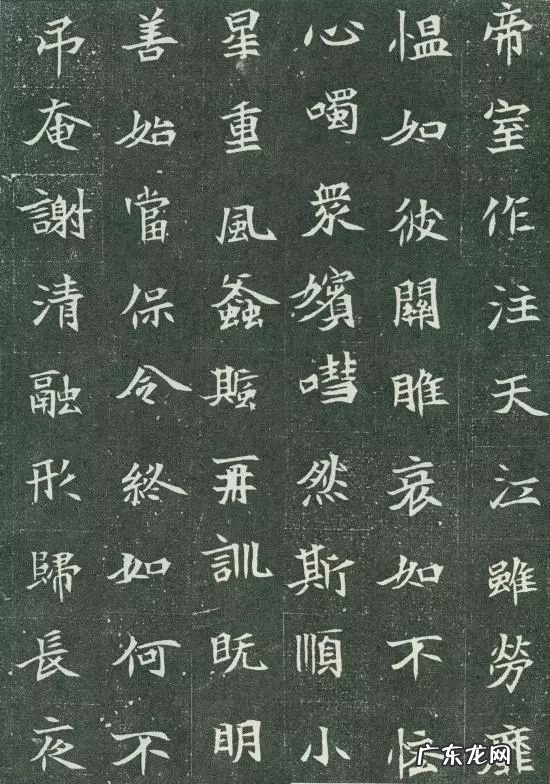 帝室作注天江雖勞雍
愠如彼關雎哀如不
心噣眾嬪嘒然斯順小
星重風螽再訓既明
善始當保令終如何不
吊庵謝清融形歸長夜
广东龙网